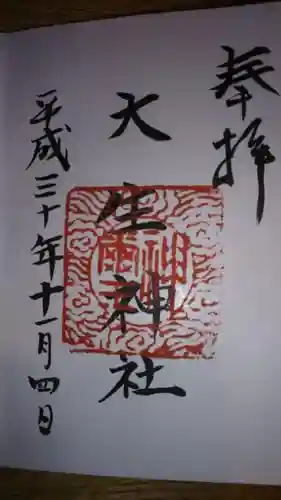 奉拝
大生神社
平成三十年十一月四日